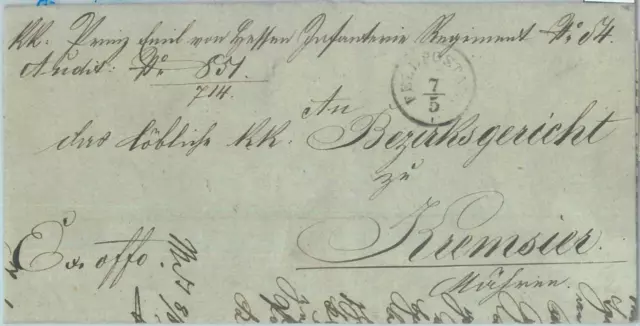 KK. Prinz Emil von Hessen Infanterie Regiment No 54.
Audit: No 851
714.
FELDPOSTA
7
5
An
das löbliche KK. Bezirksgericht
zu
Kremsier.
Mähren.
Ex offo.